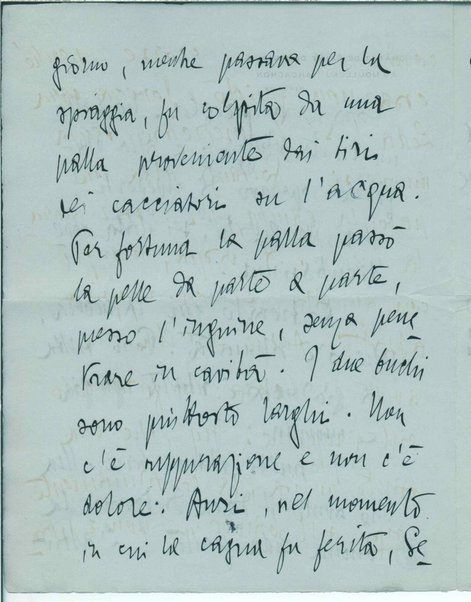 giorno, mentre passava per la
spiaggia, fu colpita da una
palla proveniente dai tiri
dei cacciatori su l'acqua.
Per fortuna la palla passò
la pelle da parte a parte,
presso l'inguine, senza pene
trare in cavità. I due buchi
sono piuttosto larghi. Non
c'è suppurazione e non c'è
dolore. Anzi, nel momento
in cui la cagna fu ferita, Ge